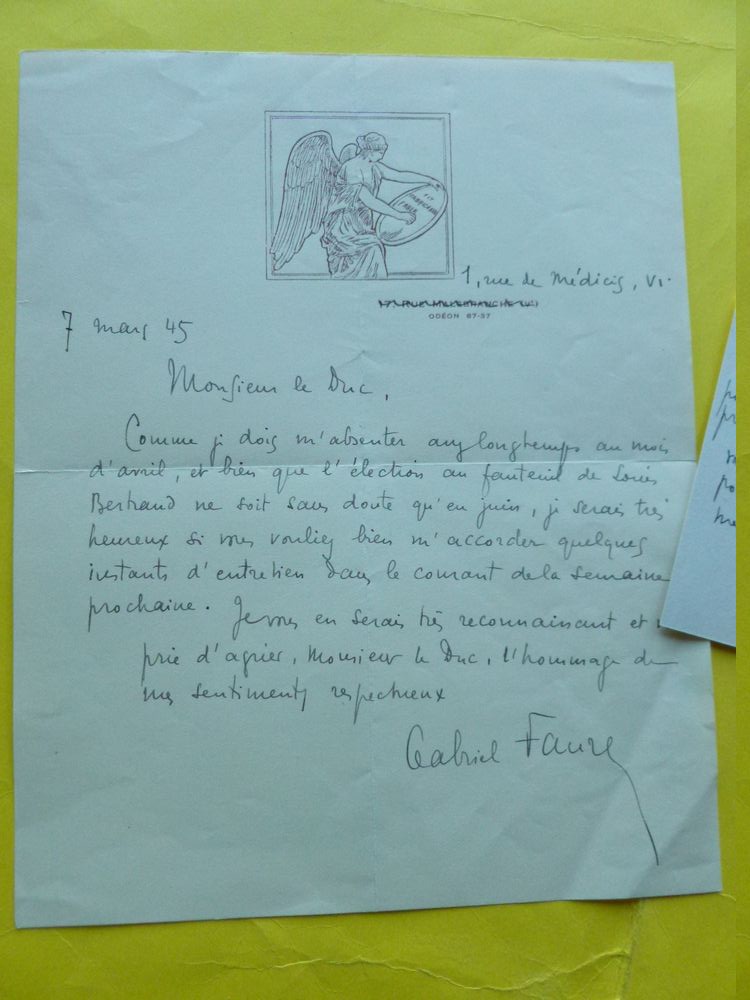 1, rue de Médicis, VI.
17, RUE MALEBRANCHE (Ve)
ODÉON 67-37
7 mars 45
Monsieur le Duc,
Comme je dois m'absenter assez longtemps au mois
d'avril, et bien que l'élection au fauteuil de Louis
Bertrand ne soit sans doute qu'en juin, je serais très
heureux si vous vouliez bien m'accorder quelques
instants d'entretien dans le courant de la semaine
prochaine. Je vous en serais très reconnaissant et
prie d'agréer, Monsieur le Duc, l'hommage de
mes sentiments respectueux
Gabriel Faure